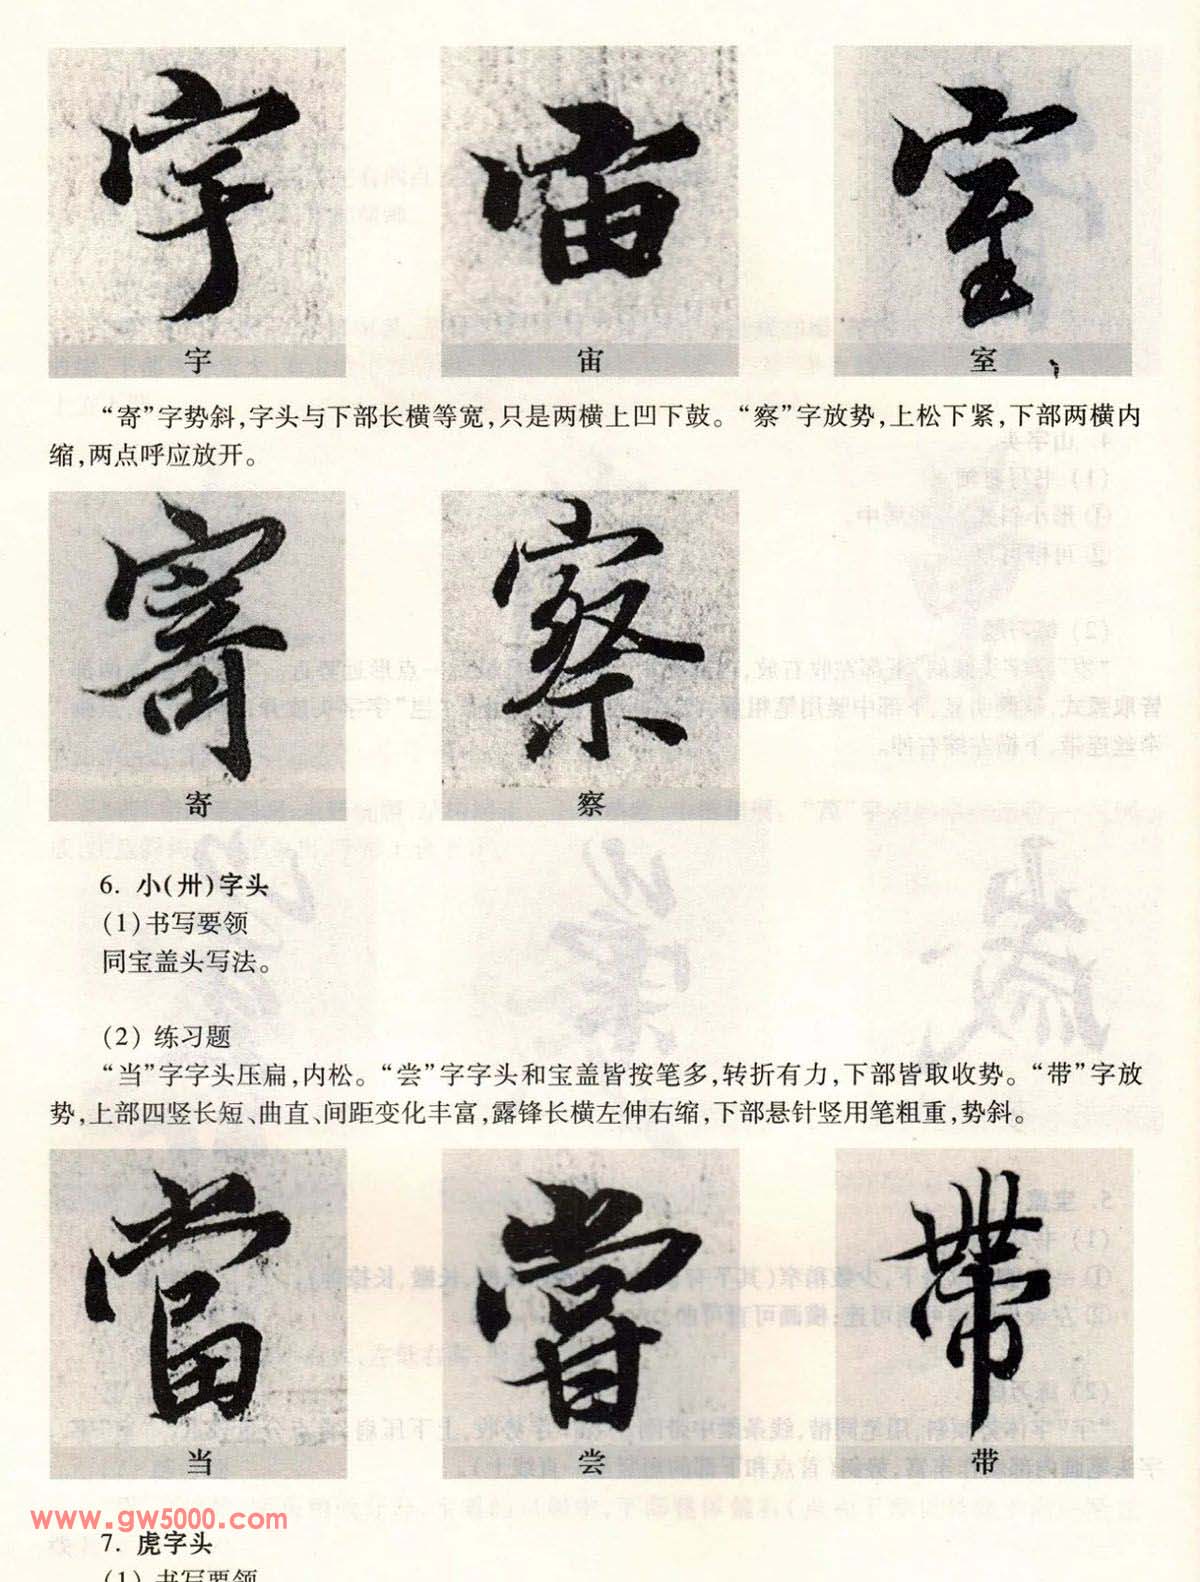 宇 宙 室
“寄”字势斜,字头与下部长横等宽,只是两横上凹下鼓。“察”字放势,上松下紧,下部两横内
缩,两点呼应放开。
寄 察
6. 小(卅)字头
(1)书写要领
同宝盖头写法。
(2) 练习题
“当”字字头压扁,内松。“尝”字字头和宝盖皆按笔多,转折有力,下部皆取收势。“带”字放
势,上部四竖长短、曲直、间距变化丰富,露锋长横左伸右缩,下部悬针竖用笔粗重,势斜。
当 尝 带
www.gw5000.com
7. 虎字头
(1) 书写要领